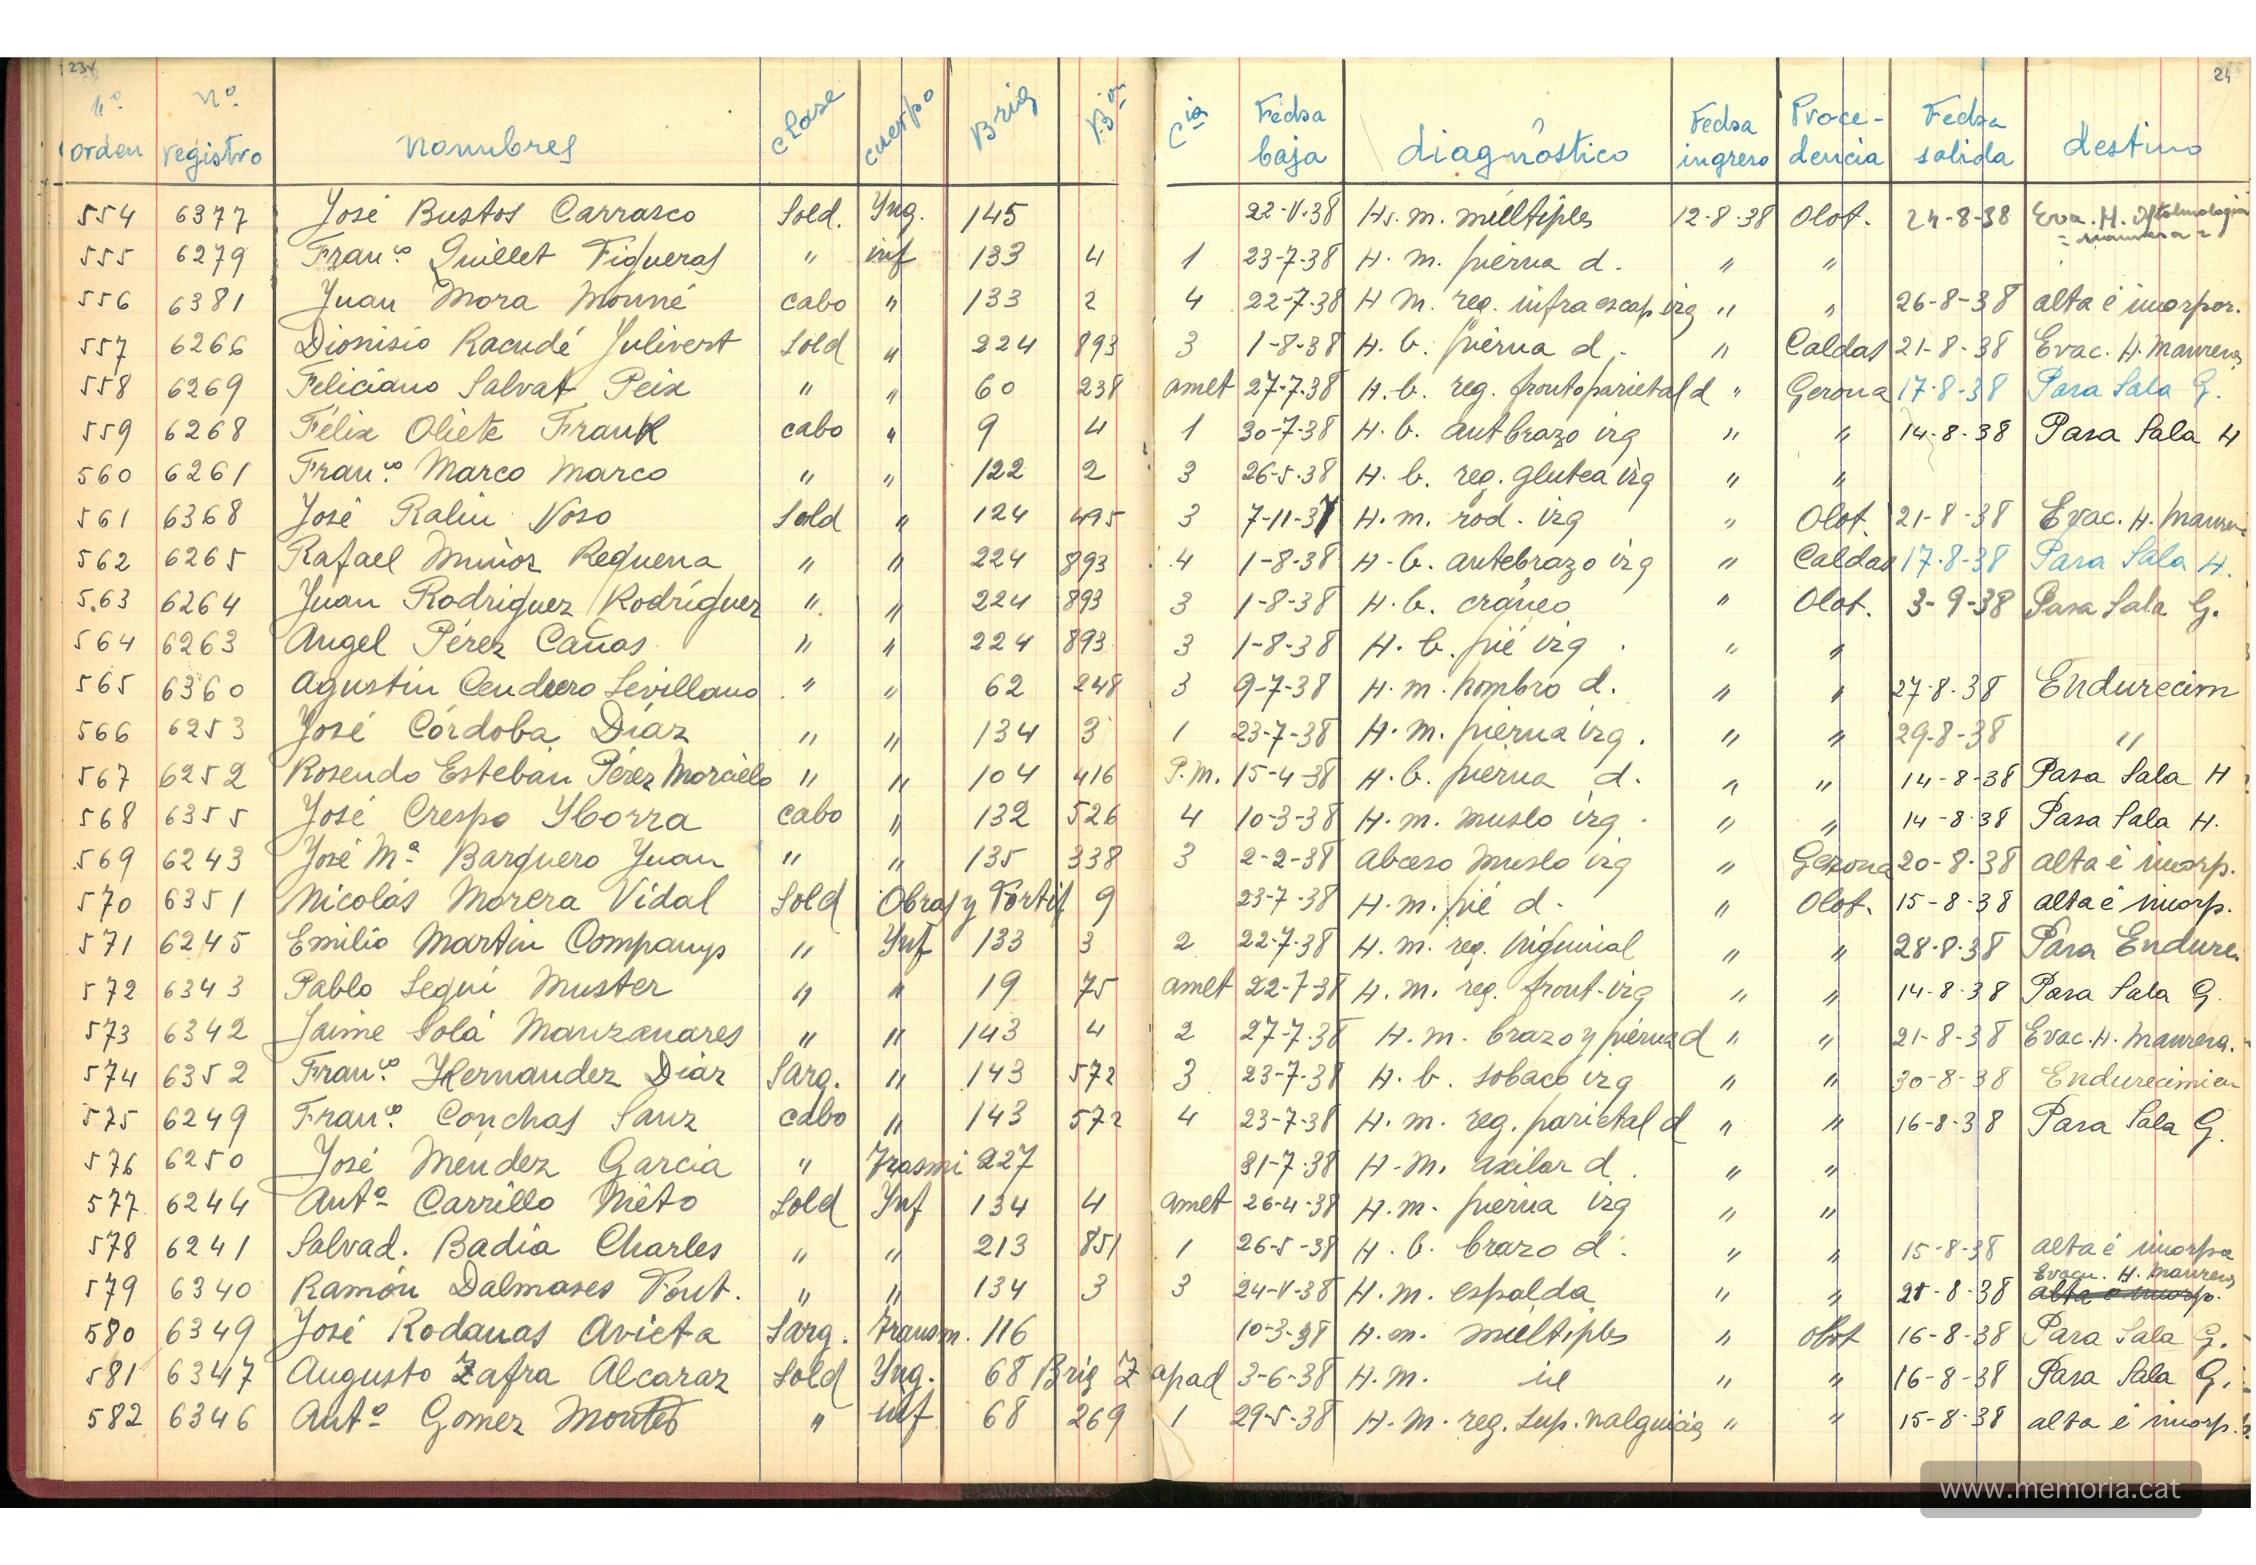 23v
24
nº orden nº registro nombres clase cuerpo Brig Bón Cia Fecha baja diagnóstico Fecha ingreso Procedencia Fecha salida destino
554 6377 José Bustos Carrasco Sold. Yng. 145 22-V-38 Hs. m. múltiples 12-8-38 Olot. 24-8-38 Eva. H. Oftalmologia
= manresa =
555 6279 Franco. Guillet Figueras " inf 133 4 1 23-7-38 H. m. pierna d. " "
556 6381 Juan Mora Monné cabo " 133 2 4 22-7-38 H m. reg. infraescap izq " " 26-8-38 alta é incorpor.
557 6266 Dionisio Racudé Julivert Sold " 224 893 3 1-8-38 H. b. pierna d. " Caldas 21-8-38 Evac. H. Manresa
558 6269 Feliciano Salvat Peix " " 60 238 amet 27-7-38 H. b. reg. frontoparietal d " Gerona 17-8-38 Pasa Sala G.
559 6268 Félix Oliete Frank cabo " 9 4 1 30-7-38 H. b. antbrazo izq " " 14-8-38 Pasa Sala H
560 6261 Franco. Marco Marco " " 122 2 3 26-5-38 H. b. reg. glutea izq " "
561 6368 José Ralin Noso Sold " 124 495 3 7-11-37 H. m. rod. izq " Olot. 21-8-38 Evac. H. Manresa
562 6265 Rafael Muñoz Requena " " 224 893 4 1-8-38 H. b. antebrazo izq " Caldas 17-8-38 Pasa Sala H.
563 6264 Juan Rodriguez Rodríguez " " 224 893 3 1-8-38 H. b. cráneo " Olot. 3-9-38 Pasa Sala G.
564 6263 Angel Pérez Cañas " " 224 893 3 1-8-38 H. b. pié izq " "
565 6360 Agustin Cendrero Sevillano " " 62 248 3 9-7-38 H. m. hombro d. " " 27-8-38 Endurecim
566 6253 José Córdoba Díaz " " 134 3 1 23-7-38 H. m. pierna izq. " " 29-8-38 "
567 6252 Rosendo Esteban Pérez Morcielo " " 104 416 P.M. 15-4-38 H. b. pierna d. " " 14-8-38 Pasa Sala H
568 6355 José Crespo Yborra cabo " 132 526 4 10-3-38 H. m. muslo izq. " " 14-8-38 Pasa Sala H.
569 6243 José Mª Barquero Juan " " 135 338 3 2-2-38 Abceso muslo izq " Gerona 20-8-38 alta é incorp.
570 6351 Nicolás Morera Vidal Sold Obras y Fortif 9 23-7-38 H. m. pié d. " Olot. 15-8-38 alta é incorp.
571 6245 Emilio Martin Companys " Ynf 133 3 2 22-7-38 H. m. reg. inguinal " " 28-8-38 Para Endure.
572 6343 Pablo Seguí Muster " " 19 75 amet 22-7-38 H. m. reg. front-izq " " 14-8-38 Pasa Sala G.
573 6342 Jaime Solá Manzanares " " 143 4 2 27-7-38 H. m. brazo y pierna d " " 21-8-38 Evac. H. Manresa.
574 6352 Franco. Hernandez Díaz Sarg. " 143 572 3 23-7-38 H. b. sobaco izq " " 30-8-38 Endurecimien
575 6249 Franco. Conchas Sanz cabo " 143 572 4 23-7-38 H. m. reg. parietal d " " 16-8-38 Pasa Sala G.
576 6250 José Méndez Garcia " Trasmi 227 31-7-38 H. M. axilar d. " "
577 6244 Antº Carrillo Nieto Sold Ynf 134 4 amet 26-4-38 H. m. pierna izq " "
578 6241 Salvad. Badia Charles " " 213 851 1 26-5-38 H. b. brazo d. " " 15-8-38 alta é incorpo
579 6340 Ramón Dalmases Font. " " 134 3 3 24-V-38 H. m. espalda " " 21-8-38 Evacu. H. Manresa
alta e incorp.
580 6349 José Rodanas Avieta Sarg. Transm. 116 10-3-38 H. m. múltiples " Olot 16-8-38 Pasa Sala G.
581 6347 Augusto Zafra Alcaraz Sold Yng. 68 Brig Zapad 3-6-38 H. M. " " 16-8-38 Pasa Sala G.
582 6346 Antº Gomez Montes " inf 68 269 1 29-5-38 H. M. reg. sup. nalga izq " " 15-8-38 alta é incorp.
www.memoria.cat